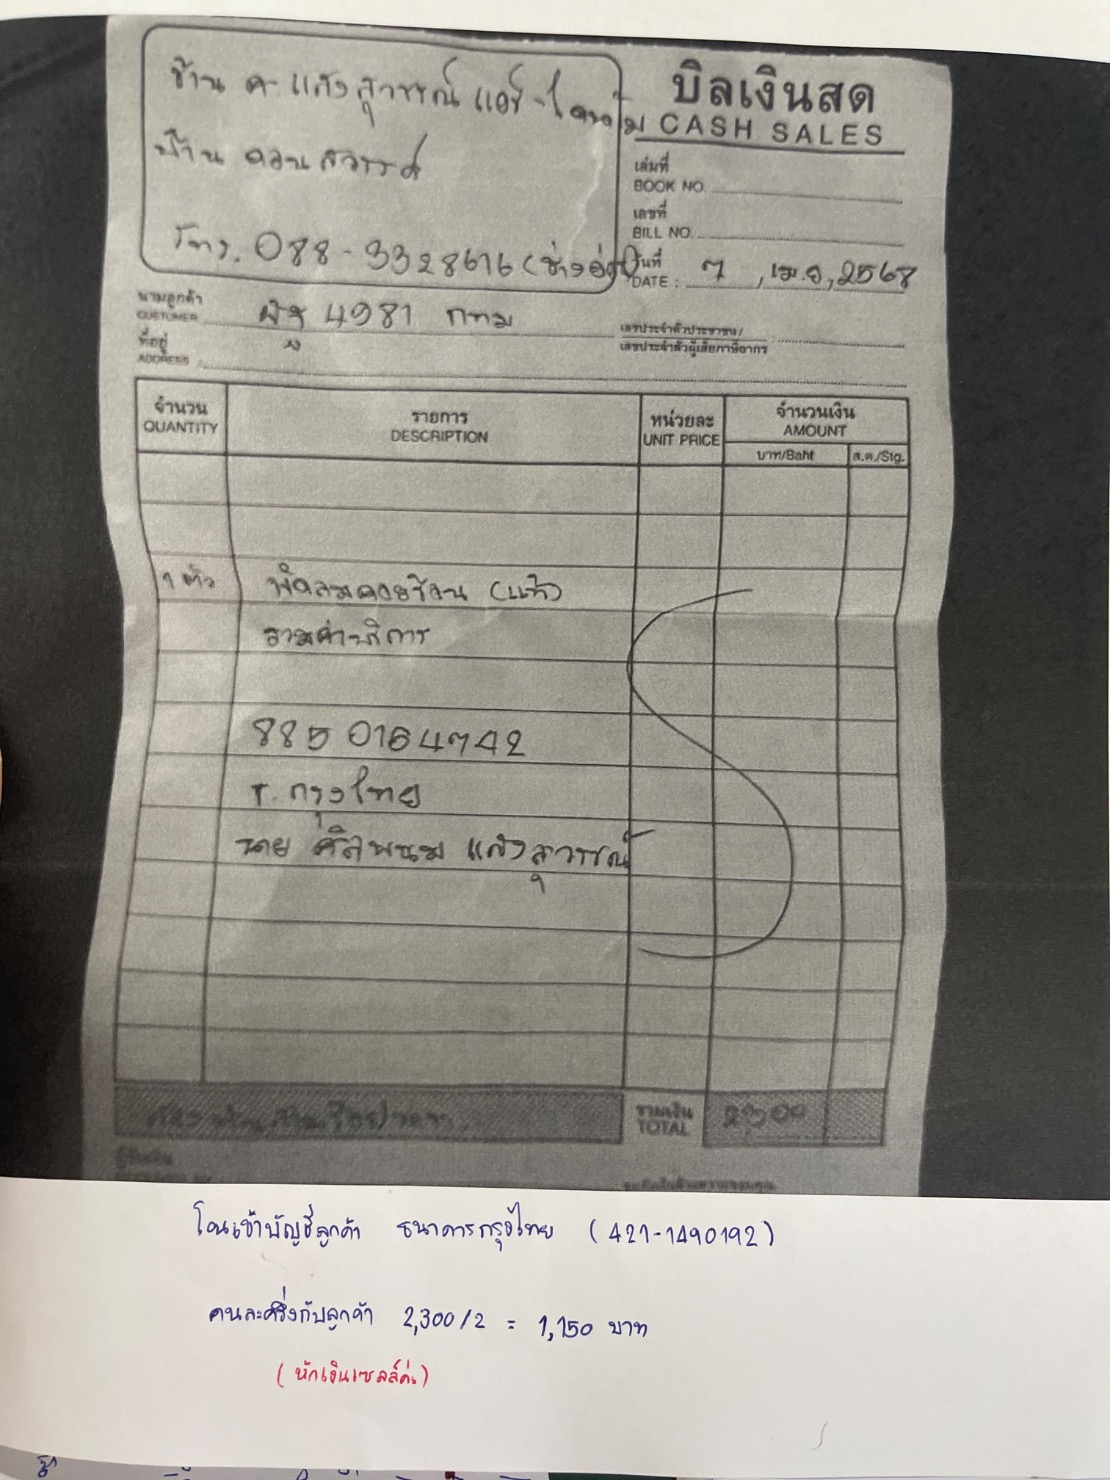 ร้าน ค. แสงสุวรรณ์ แอร์-ไดนาโม
บ้าน ดอนสวรรค์
โทร. 088-3328616 (ช่างอ๋อ)
บิลเงินสด
CASH SALES
เล่มที่
BOOK NO.
เลขที่
BILL NO.
วันที่
DATE : 7 , เม.ย, 2568
นามลูกค้า
CUSTOMER 4981 กทม
ที่อยู่
ADDRESS
เลขประจำตัวประชาชน/
เลขประจำตัวผู้เสียภาษีอากร
จำนวน
QUANTITY
รายการ
DESCRIPTION
หน่วยละ
UNIT PRICE
จำนวนเงิน
AMOUNT
บาท/Baht
ส.ต./Stg.
1 ตัว พัดลมคอยร้อน (แท้)
รวมค่าบริการ
885 0164742
ธ. กรุงไทย
นาย ศิลพนม แสงสุวรรณ์
รวมเงิน
TOTAL 2300
โอนเข้าบัญชีลูกค้า ธนาคารกรุงไทย (421-1490192)
คนละครึ่งกับลูกค้า 2,300/2 = 1,150 บาท
(หักเงินเซลล์ค่ะ)